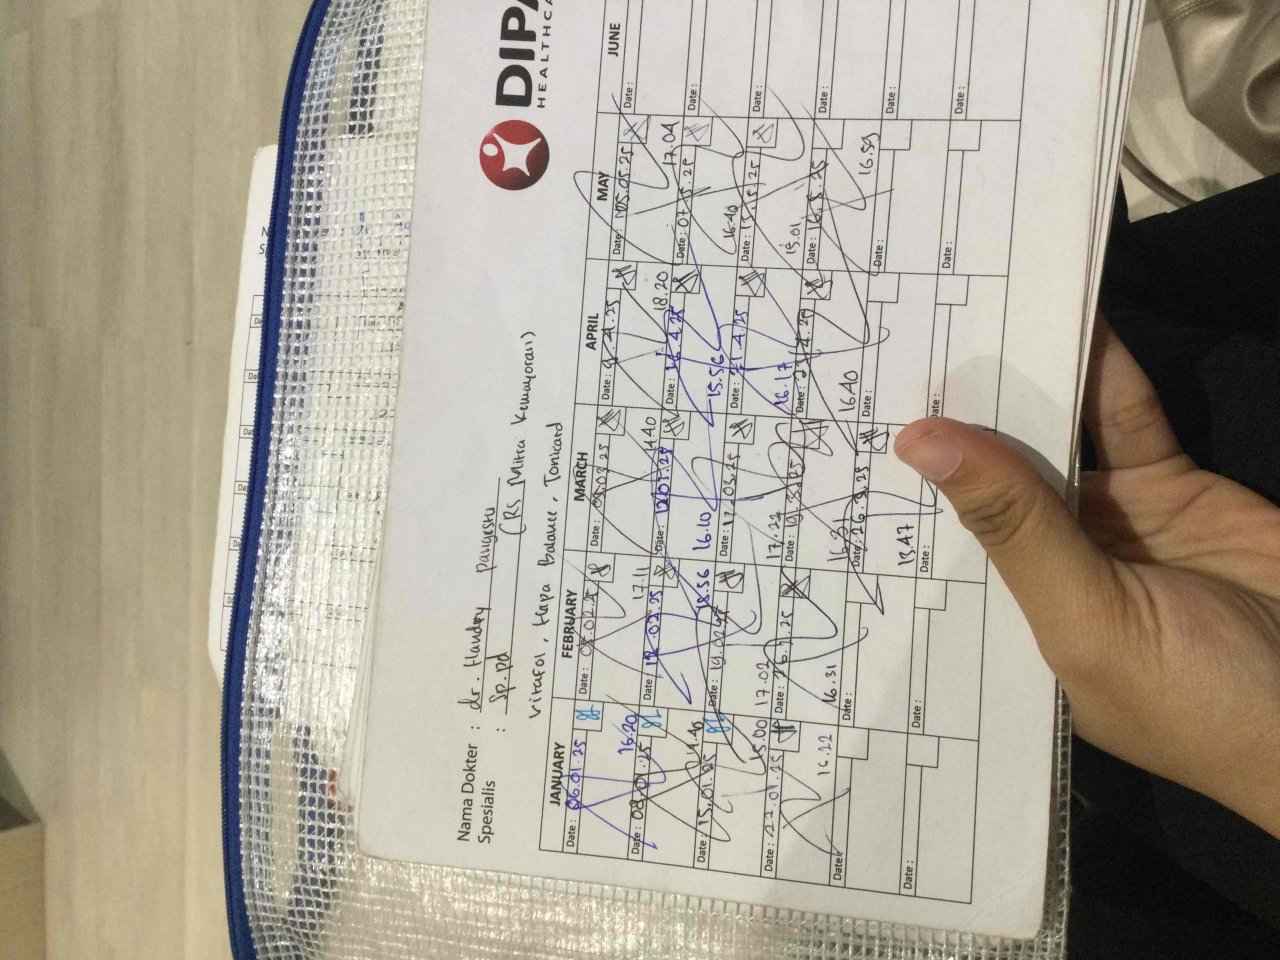 DIPA
HEALTHCA
Nama Dokter : dr. Handry pangestu
Spesialis : Sp.pd (RS Mitra Kemayoran)
Vitafol, Hepa Balance, Tonicard
JANUARY FEBRUARY MARCH APRIL MAY JUNE
Date: 06.01.25 Date: 05.02.25 Date: 03.25 Date: 9.4.25 Date: 05.05.25 Date:
16.20 17.11 18.20 17.04
Date: 08.01.25 Date: 12.02.25 Date: Date: 16.4.25 Date: 07.5.25 Date:
18.56 16.10 15.56 16.40
Date: 15.01.25 Date: 19.02.25 Date: 17.03.25 Date: 21.4.25 Date: 15.5.25 Date:
15.00 17.02 17.27 16.17 15.01
Date: 22.01.25 Date: 26.2.25 Date: Date: Date: 16.5.25 Date:
16.22 16.31 16.31 16.40 16.59
Date: Date: Date: 26.3.25 Date: Date: Date:
13.47
Date: Date: Date: Date: Date: Date: